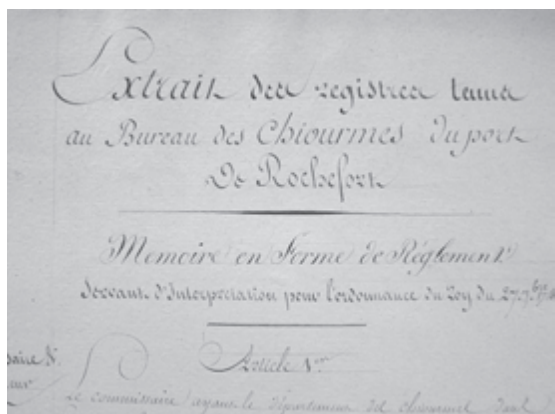 Extrait des registres tenus
au Bureau des Chiourmes du port
De Rochefort
Memoire en Forme de Réglement
Servant d'Interpretation pour l'ordonnance du Roy du 27 7bre
Article 1er
Le commissaire ayant le département des chiourmes dans